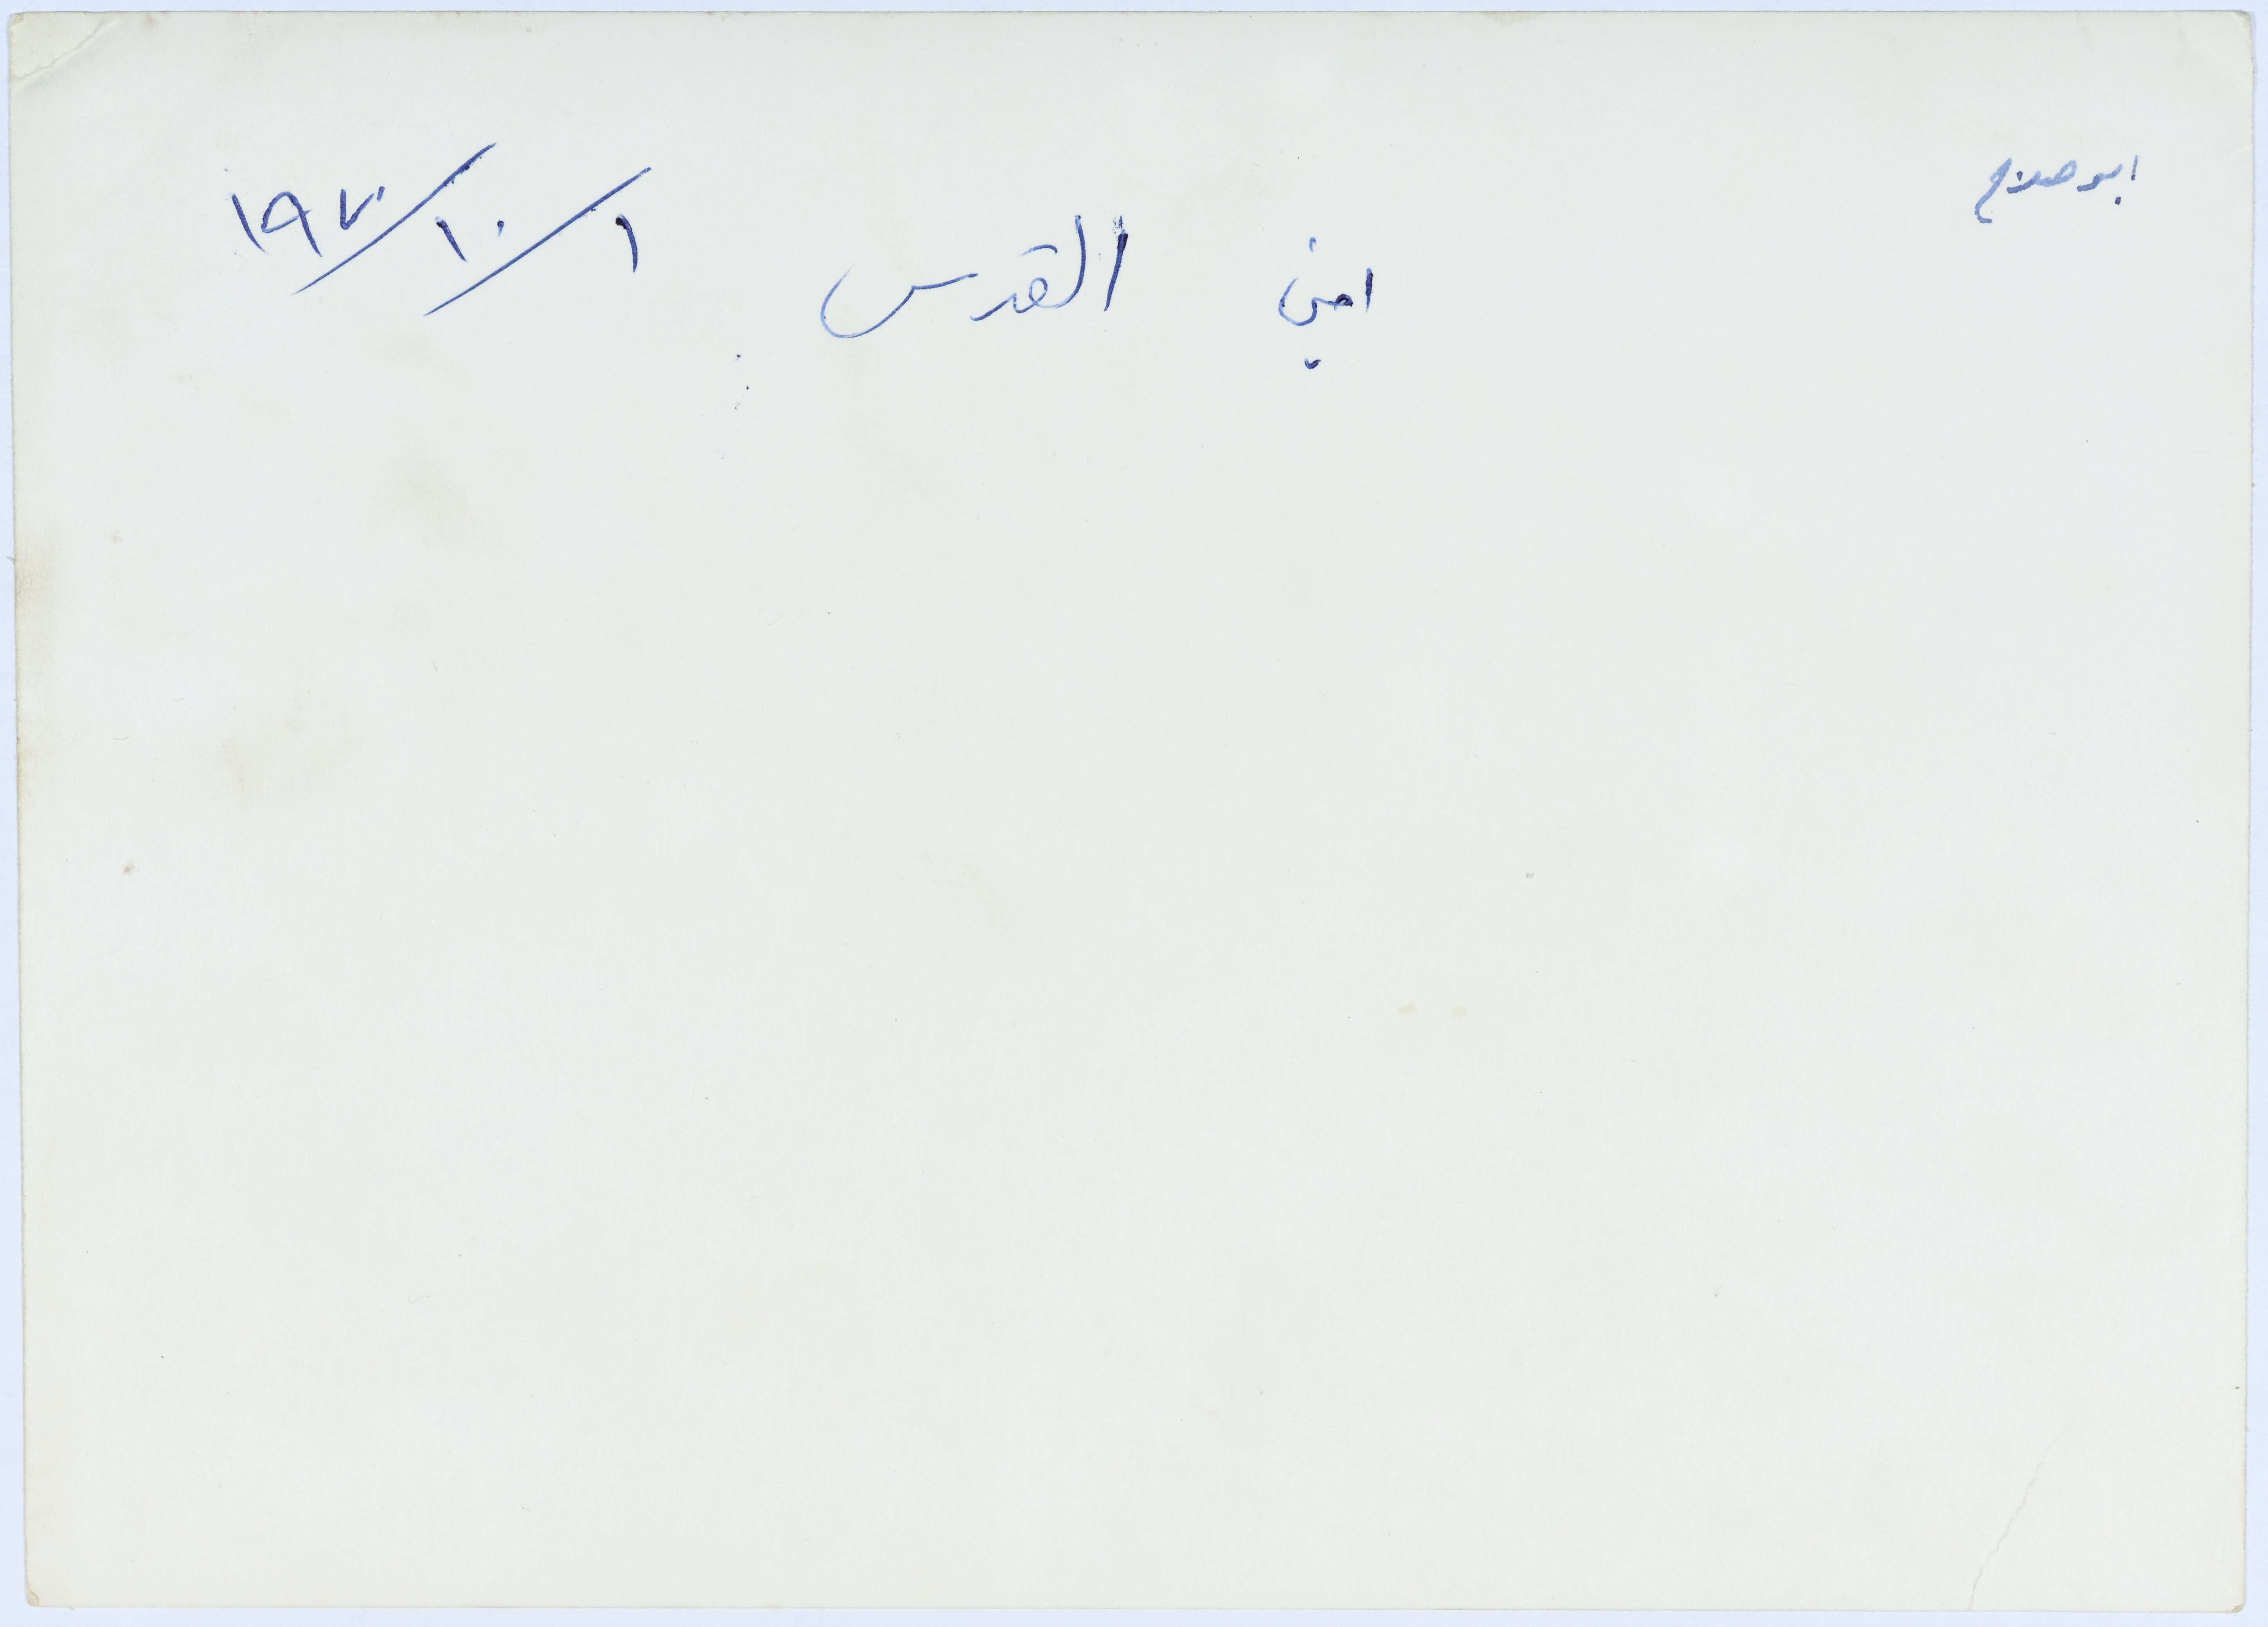 ابو صلاح
امين القدس ١/١٠/١٩٧٠